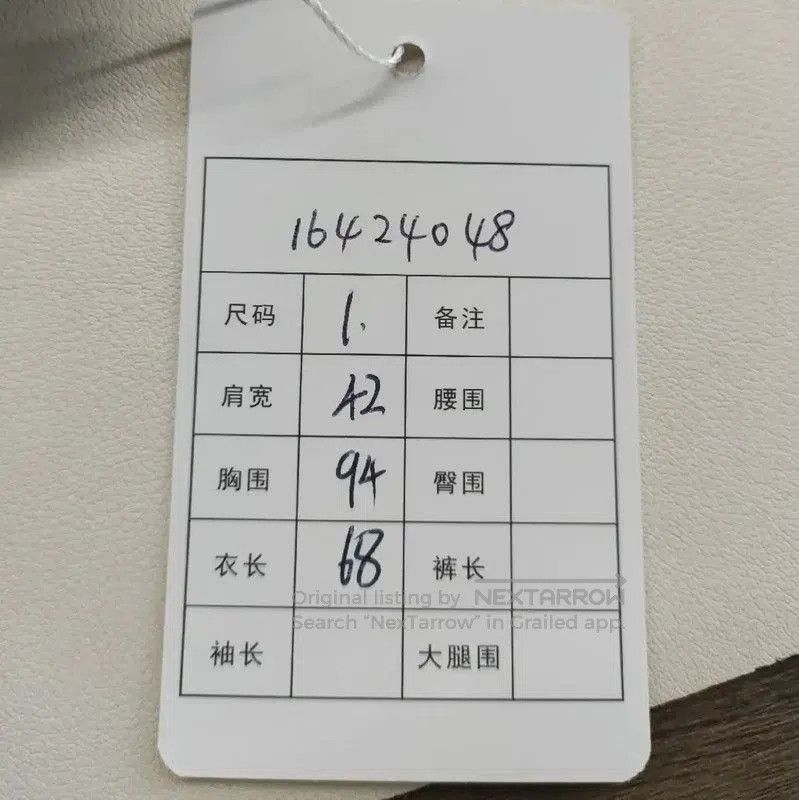 16424048
尺码 1. 备注
肩宽 42 腰围
胸围 94 臀围
衣长 68 裤长
Original listing by NEXTARROW
Search “NexTarrow” in Grailed app.
袖长 大腿围